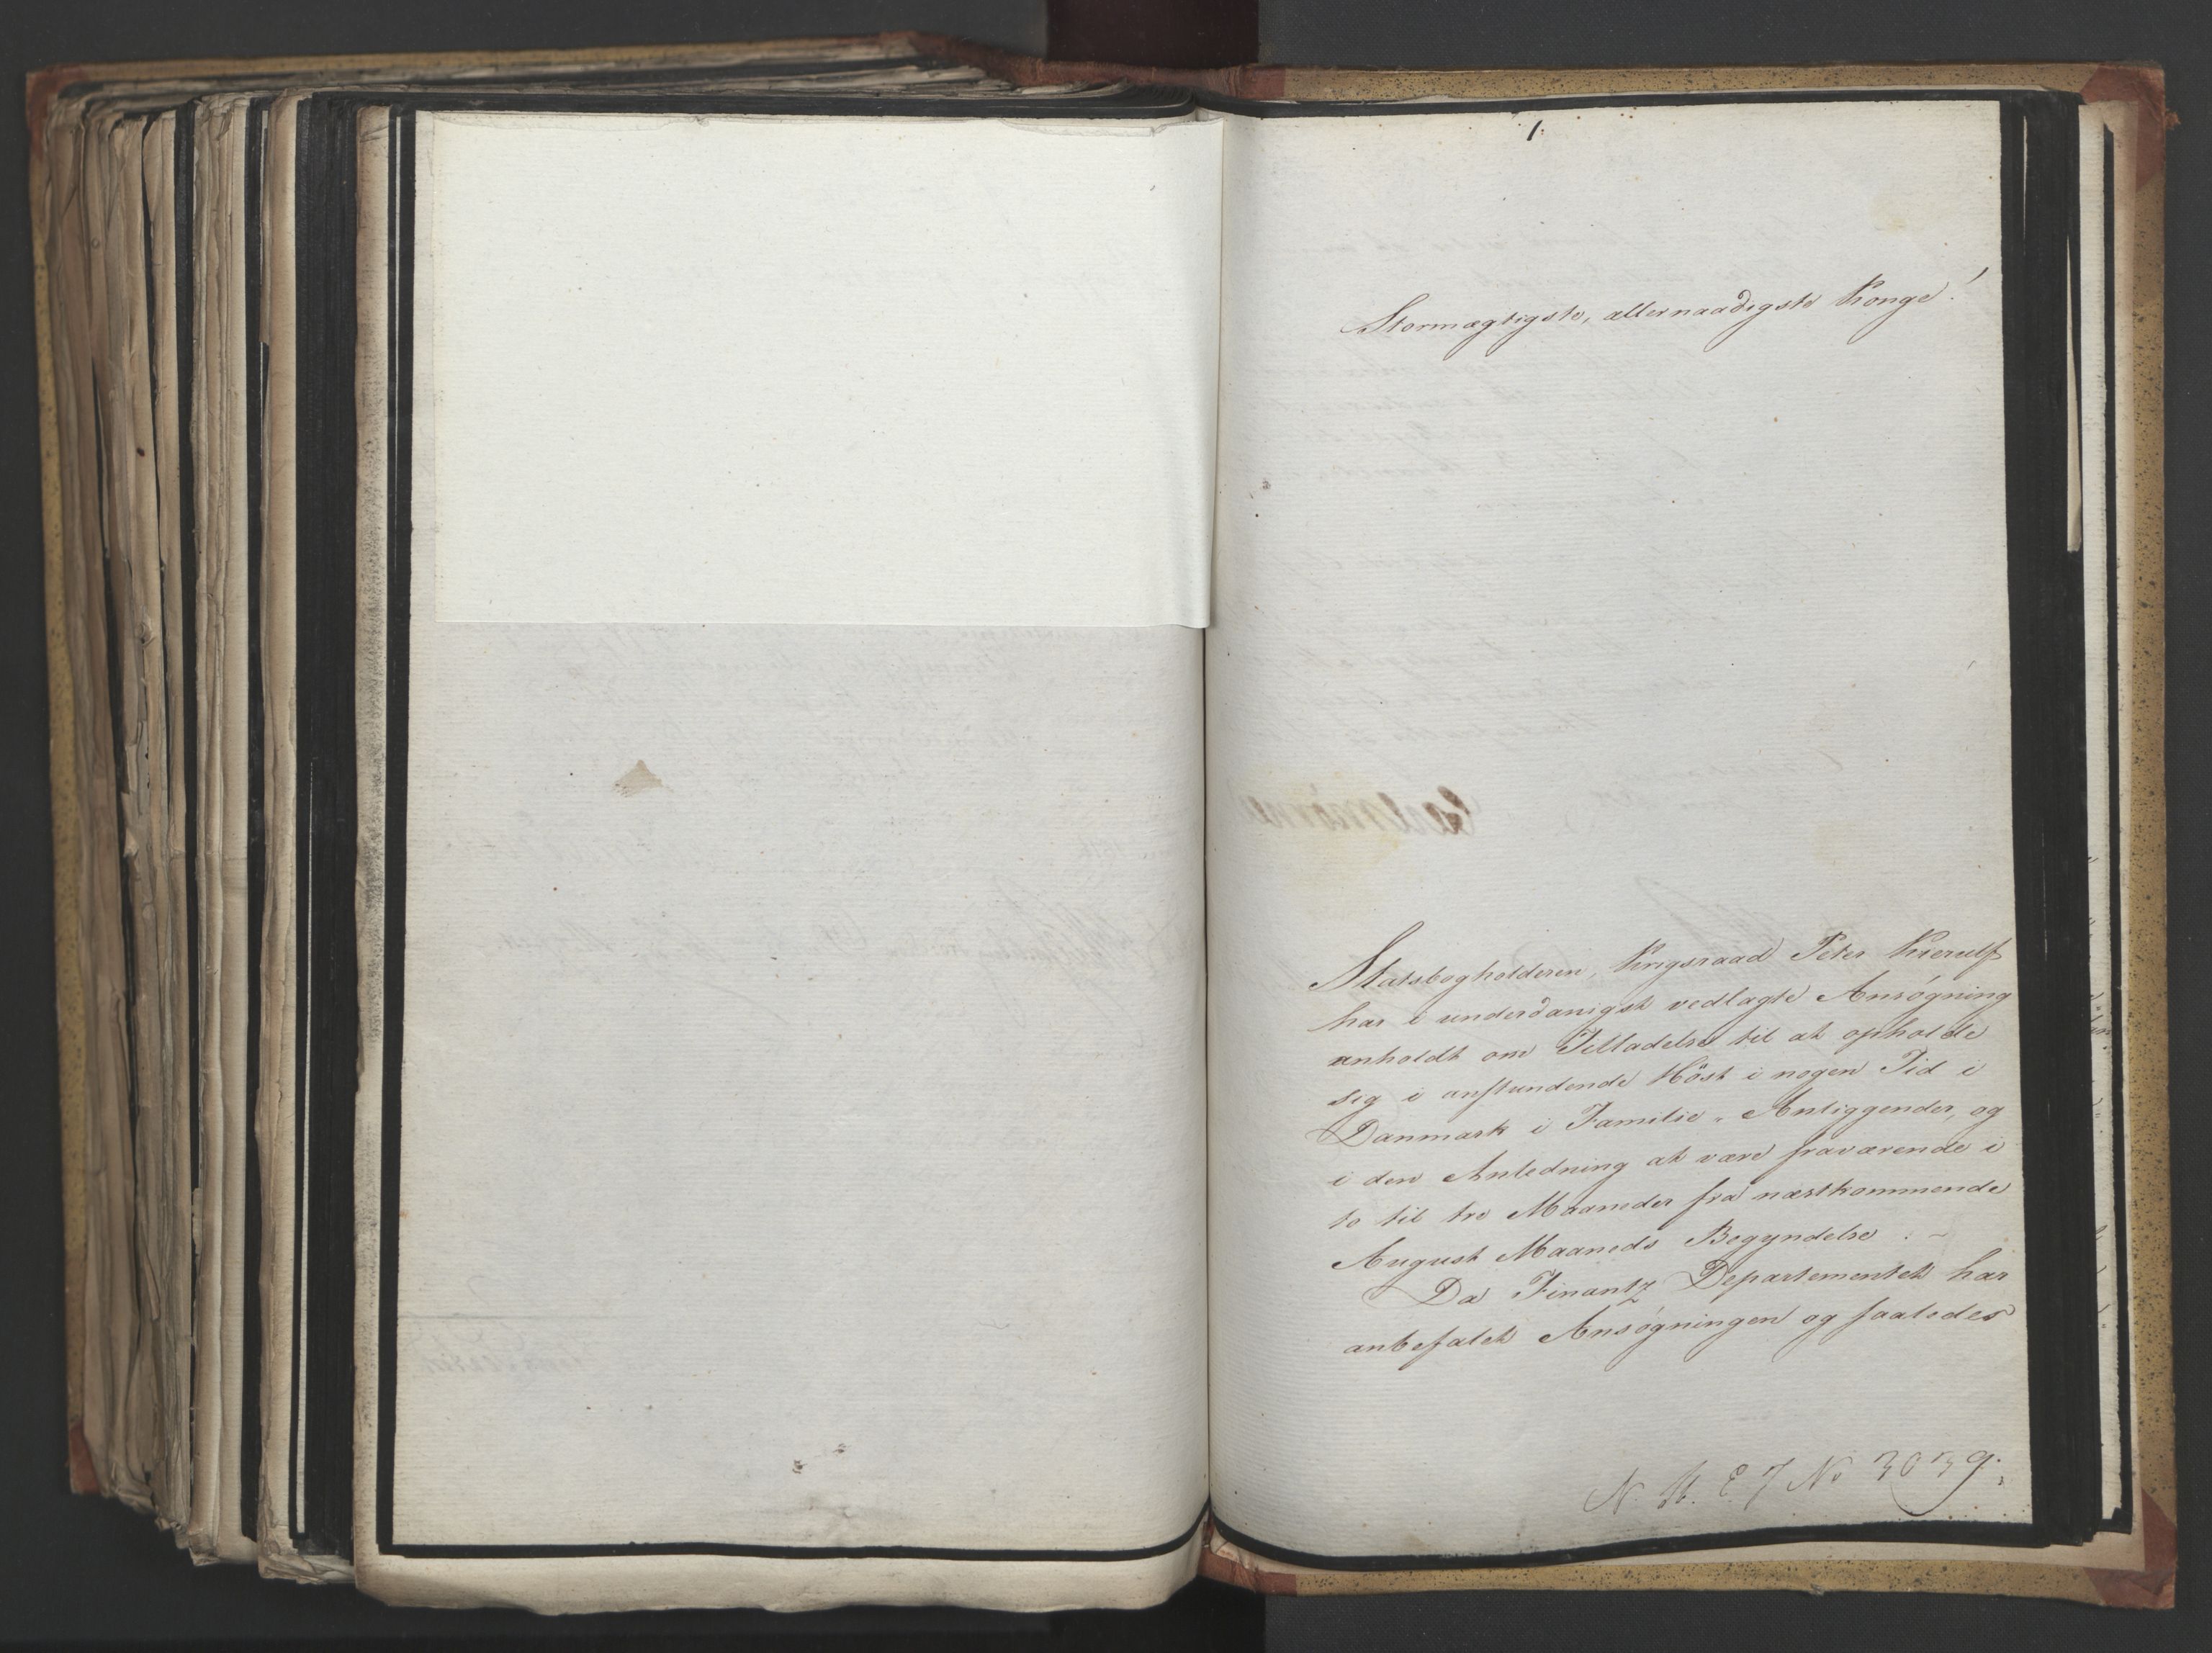 1.
Stormægtigste, allernaadigste Konge!
Statsbogholderen, Krigsraad Peter Kierulf
har i underdanigst vedlagte Ansøgning
anholdt om Tilladelse til at opholde
sig i anstundende Høst i nogen Tid i
Danmark i Familie-Anliggender, og
i den Anledning at være fraværende i
to til tre Maaneder fra næstkommende
August Maaneds Begyndelse. –
Da Finantz Departementet har
anbefalet Ansøgningen og saaledes
No 3039.